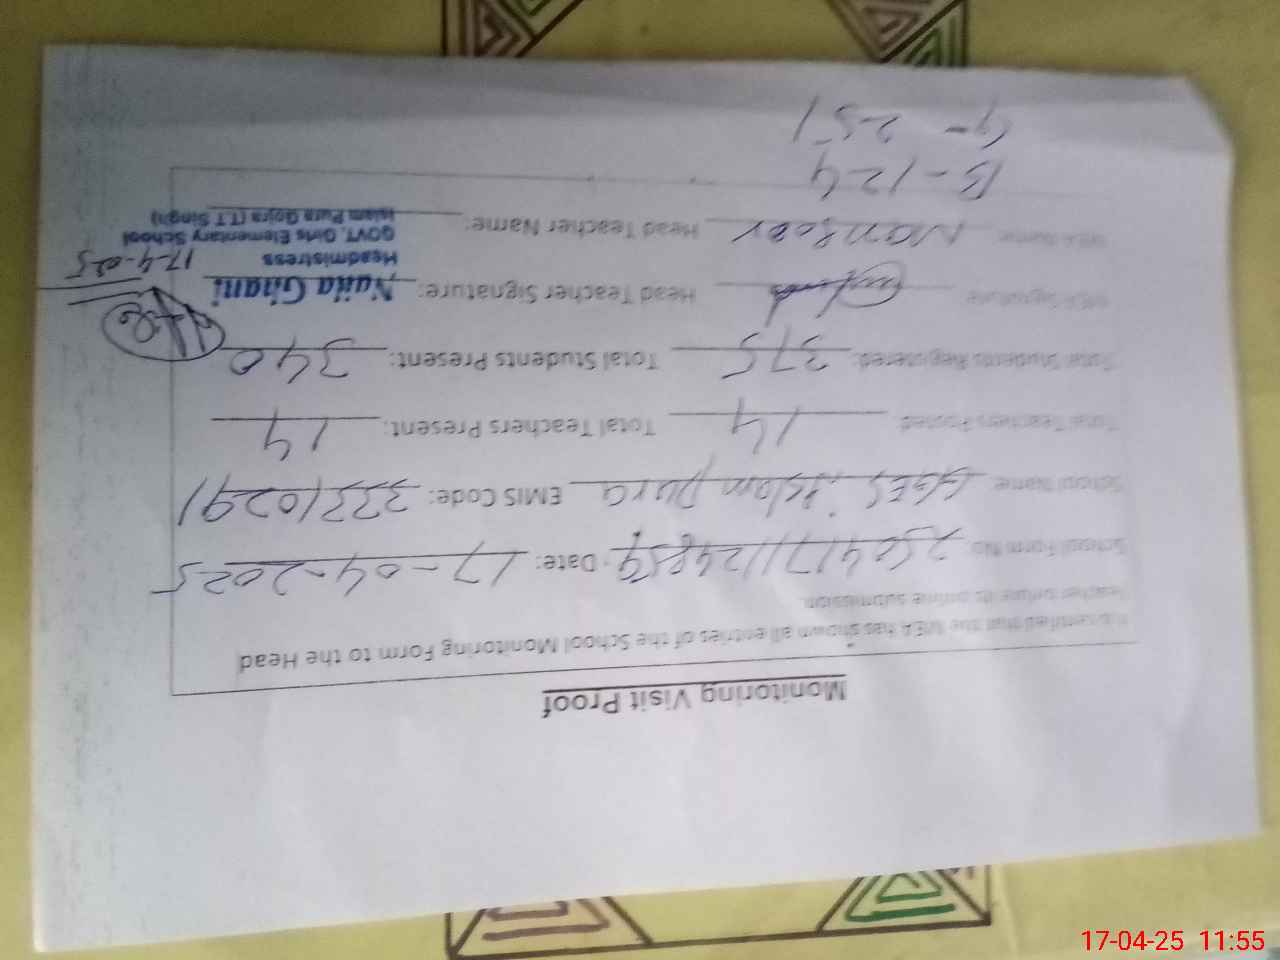 Monitoring Visit Proof
It is certified that the MEA has shown all entries of the School Monitoring Form to the Head
Teacher before its online submission.
School Form No: Date: 17-04-2025
School Name: GGES, Islam pura EMIS Code: 33310291
Total Teachers Posted: 14 Total Teachers Present: 14
Total Students Registered: 375 Total Students Present: 340
MEA Signature: Head Teacher Signature: Naila Ghani
17-4-025
Headmistress
GOVT. Girls Elementary School
Islam Pura Gojra (T.T Singh)
MEA Name: Manzoor Head Teacher Name:
B-124
G-251
17-04-25 11:55